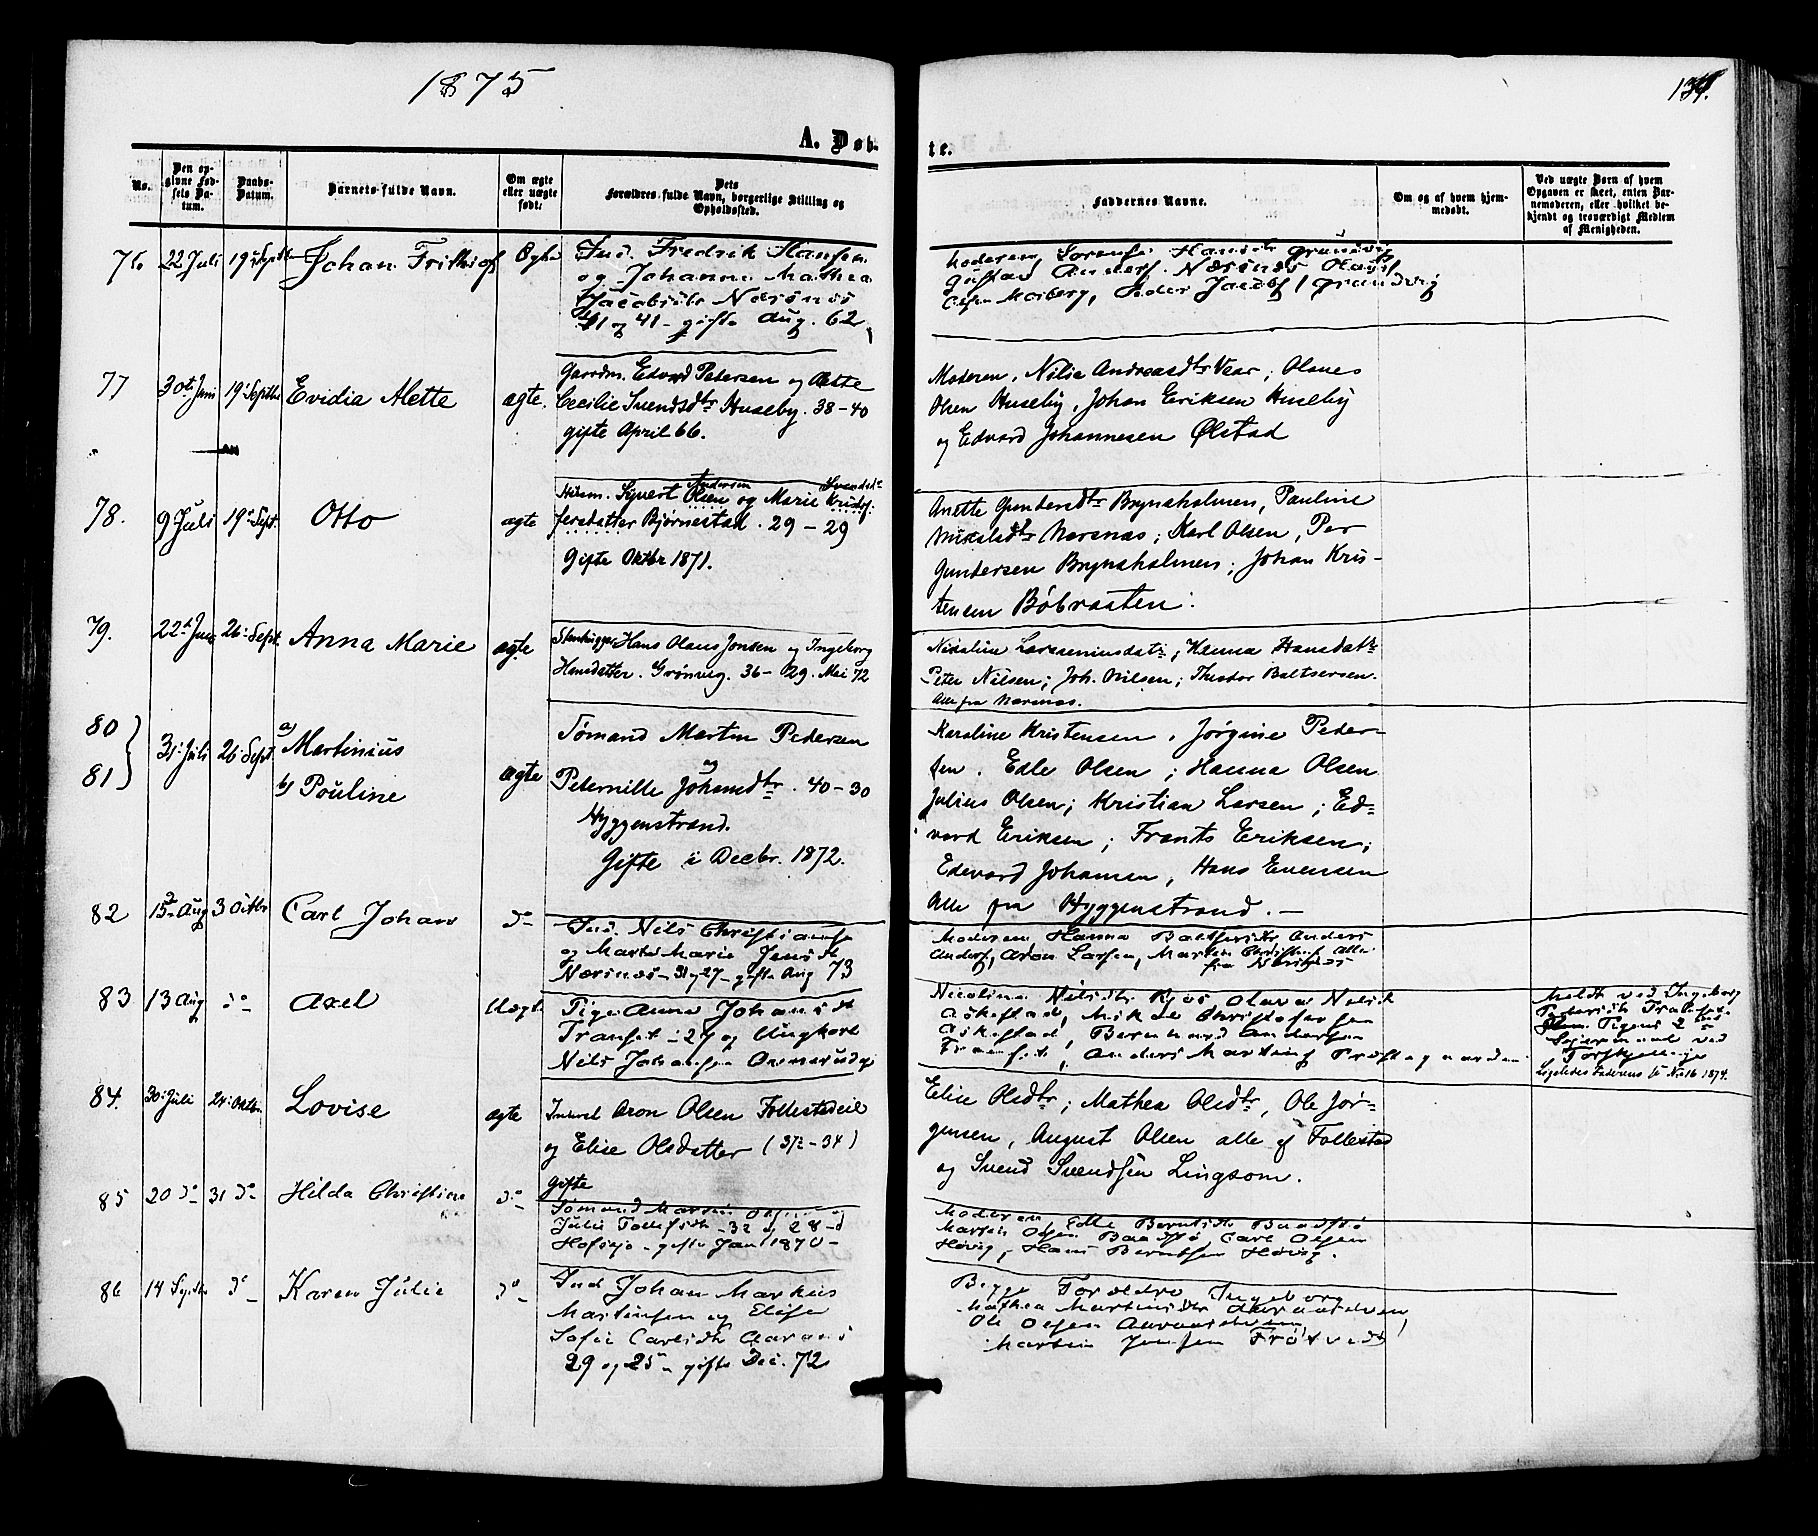 1875
A. Døb-
te.
No.
Den op-
givne Fød-
sels Da-
tum.
Daabs-
Datum.
Barnets fulde Navn.
Om ægte
eller uægte
født.
Dets
Forældres fulde Navn, borgerlige Stilling og
Opholdssted.
Faddernes Navne.
Om og af hvem hjem-
medøbt.
Ved uægte Børn af hvem
Opgaven er skeet, enten Bar-
nemoderen, eller hvilket be-
kjendt og troværdigt Medlem
af Menigheden.
76 22 Juli 19 Septbr Johan Frithiof Ægte
Ind. Fredrik Hansen
og Johanne Mathea
Jacobsdtr Nærsnæs
41 og 41 - gifte Aug. 62
Moderen, Hansdtr Grundvig
Gustav Anders. Nærsnæs
Olsen Moiberg, Peder Jacobs. Grundvig
77 30te Juni 19 Septbr Evidia Alette ægte.
Gaardm. Edvard Petersen og Alette
Cecilie Svendsdtr Huseby. 38-40
gifte April 66.
Moderen, Nilia Andreasdtr Vear, Olaves
Olsen Huseby, Johan Eriksen Huseby
og Edvard Johannesen Ølstad
78. 9 Juli 19 Sept. Otto ægte
Andersen Svendsdtr
Husm. Syvert Olsen og Marie Kristof-
fersdatter Bjørnestad. 29-29
Gifte Oktbr 1871.
Anette Gundersdtr Brynsholmen, Pauline
Mikalsdtr Nærsnæs; Karl Olsen, Per
Gundersen Brynsholmen; Johan Kris-
tensen Bøbraaten.
79. 22d Juni 26 Sept. Anna Marie ægte
Stenhugger Hans Olaus Jonsen og Ingeborg
Hansdatter. Grønvig. 36-29. Mai 72
Nikoline Larsseniusdatr, Hanna Hansdatr
Peter Nilsen; Joh. Nilsen; Theodor Baltsersen.
Alle fra Nærsnæs.
80
81 31 Juli 26 Sept.
a) Martinius
b) Pouline
ægte
Sømand Martin Pedersen
og
Peternille Johansdtr. 40-30
Hyggenstrand.
Gifte i Decbr. 1872.
Karoline Kristensen, Jørgine Peder-
sen. Edle Olsen; Hanna Olsen
Julius Olsen; Kristian Larsen; Ed-
vard Eriksen; Frants Eriksen;
Edevard Johansen, Hans Evensen
Alle fra Hyggenstrand. —
82 15 Aug 3 Octbr Carl Johan do
Ind. Nils Christiansen
og Marthe Marie Jensdtr
Nærsnæs - 31 og 27 - gifte Aug 73
Moderen Hanna Baltsersdtr Anders
Anders., Aron Larsen, Martin Christens. Alle
fra Nærsnæs
83 13 Aug do Axel Uægt.
Pige Anna Johansdtr
Transet - 29 og Ungkarl
Nils Johansen
Nicoline Nilsdtr Olava Nilsdt
Askestad, Mikael Christofersen
Askestad, Bernhard Andersen
Transet, Anders Martins. Præstegaarden
Meldt ved Ingeborg
Pedersdtr Transet
Pigens 2det
Leiermaal ved
Ligeledes Faderens No 16 1874.
84. 30 Juli 24 Oktbr. Lovise ægte
Inderst Aron Olsen Follestadeie
og Elise Olsdatter (37½-34)
gifte
Elise Olsdtr; Mathea Olsdtr, Ole Jør-
gensen, August Olsen alle af Follestad
og Svend Svendsen Lingsom.
85 20 do 31 do Hilda Christine do
Sømand Martin Olsen og
Julie Tollefsdtr - 32 og 28 -
gifte Jan 1870 -
Moderen Edle Berntsdtr Baadstø
Martin Olsen Baadstø, Carl Olsen
Høvig, Hans Berntsen Høvig.
86 14 Septbr do Karen Julie do
Ind Johan Markus
Martinsen og Elise
Sofie Carlsdtr Aaraas
29 og 25 - gifte Dec. 72
Begge Forældre Ingeborg
Mathea Martinsdtr
Ole Olsen
Martin Jensen Frøtvedt